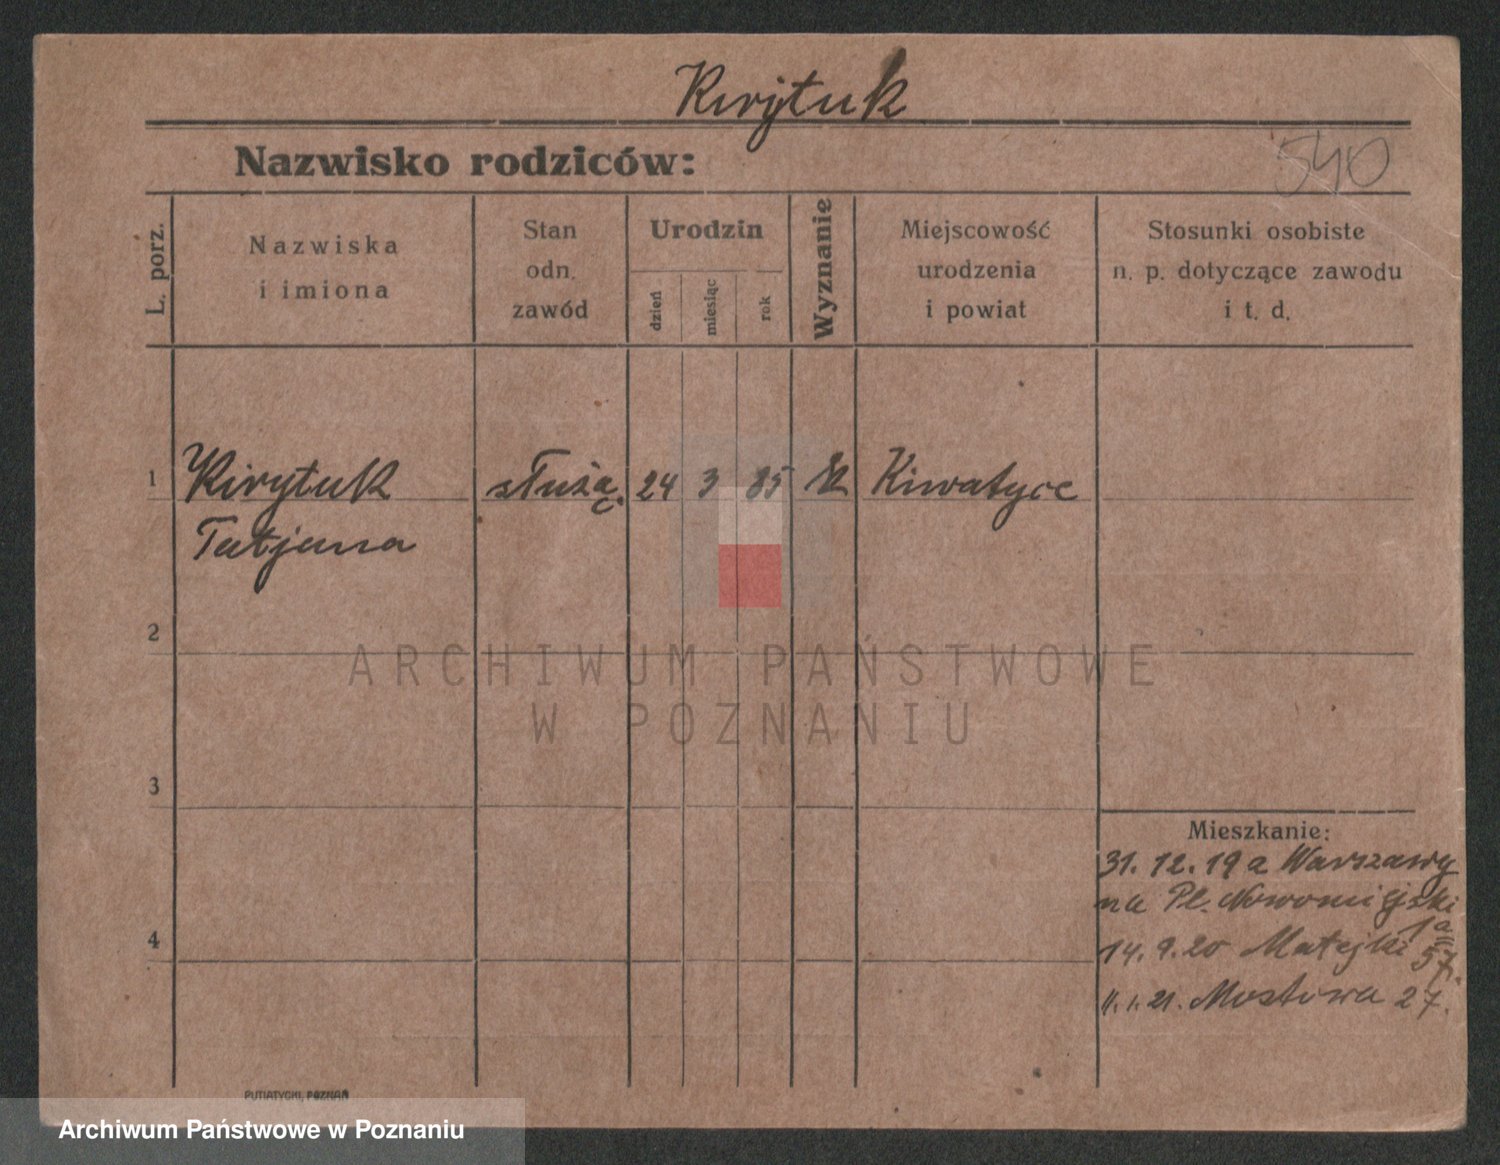 Kirytuk
Nazwisko rodziców:
540
L. porz.
Nazwiska
i imiona
Stan
odn.
zawód
Urodzin
dzień
miesiąc
rok
Wyznanie
Miejscowość
urodzenia
i powiat
Stosunki osobiste
n. p. dotyczące zawodu
i t. d.
1
Kirytuk
Tatjana
służą.
24
3
85
Kiwatyce
2
3
4
Mieszkanie:
31. 12. 19 a Warszawy
na Pl. Nowomiejski
1a
14. 9. 20 Matejki 57.
11. 1. 21. Mostowa 27.
PUTIATYCKI, POZNAŃ
ARCHIWUM PAŃSTWOWE
W POZNANIU
Archiwum Państwowe w Poznaniu